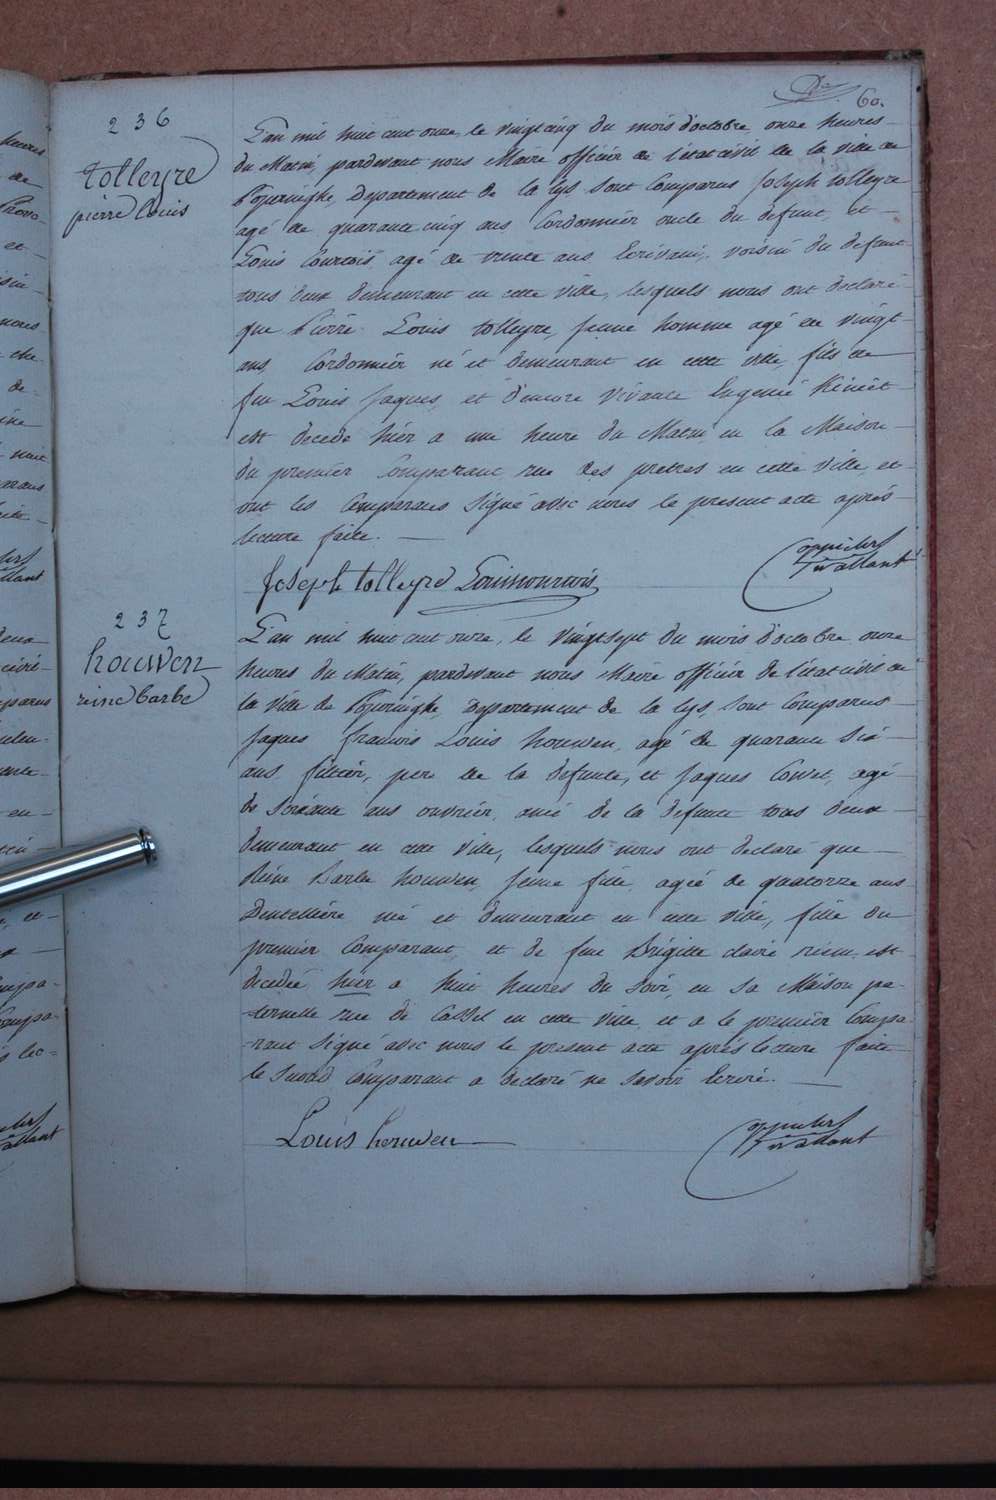 60.
236
tolleyre
pierre Louis
L'an mil huit cent onze, le vingtcinq du mois d'octobre, onze heures
du Matin, pardevant nous Maire officier de l'état civil de la ville de
Poperinghe, Departement de la Lys, sont Comparus Joseph tolleyre
agé de quarante cinq ans Cordonnier oncle du defunt, et
Louis Courtois, agé de trente ans Ecrivain, voisin du defunt
tous deux demeurant en cette ville, lesquels nous ont declaré
que Pierre Louis tolleyre, jeune homme agé de vingt
ans, Cordonnier né et demeurant en cette ville, fils de
feu Louis Jaques, et d'encore vivante Eugenie
est decedé hier a une heure du Matin en la Maison
du premier Comparant, rue des pretres en cette ville, et
ont les Comparans signé avec nous le present acte après
lecture faite.
Joseph tolleyre
237
houwen
reine barbe
L'an mil huit cent onze, le vingtsept du mois d'octobre onze
heures du Matin, pardevant nous Maire officier de l'état civil de
la ville de Poperinghe, departement de la Lys, sont Comparus
Jaques francois Louis houwen, agé de quarante six
ans, pere de la defunte, et Jaques agé
de soixante ans ouvrier, amé de la defunte tous deux
demeurant en cette ville, lesquels nous ont declaré que
Reine Barbe houwen, jeune fille, agée de quatorze ans
Dentellière né et demeurant en cette ville, fille du
premier Comparant, et de feue Brigitte claire est
decedée hier a huit heures du soir, en sa Maison pa-
-ternelle rue de Cassel en cette ville, et a le premier Compa-
-rant signé avec nous le present acte après lecture faite
le second Comparant a declaré ne savoir Ecrire.
Louis houwen